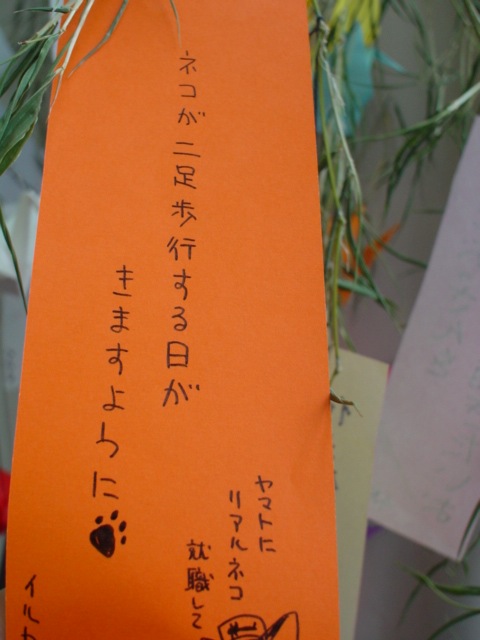 ネコが二足歩行する日が
きますように
ヤマトに
リアルネコ
就職して
イルカ